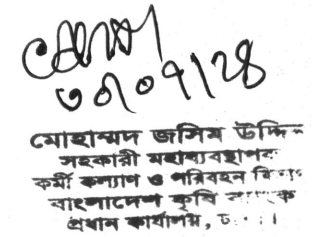 ৩০/০৭/২৪
মোহাম্মদ জসিম উদ্দিন
সহকারী মহাব্যবস্থাপক
কর্মী কল্যাণ ও পরিবহন বিভাগ
বাংলাদেশ কৃষি ব্যাংক
প্রধান কার্যালয়,